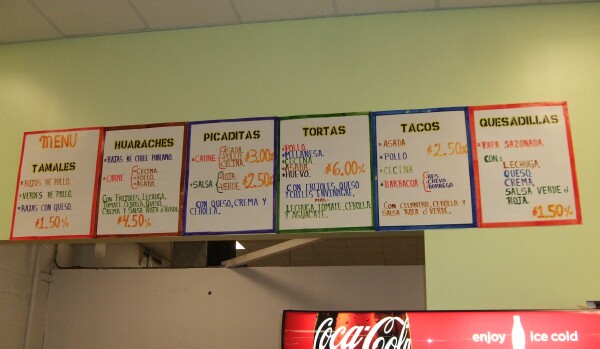 MENU
TAMALES
•ROJOS DE POLLO.
•VERDES DE POLLO.
•RAJAS CON QUESO.
$1.50
HUARACHES
•RAJAS DE CHILE POBLANO.
•CARNE
CECINA.
POLLO.
ASADA.
CON FRIJOLES, LECHUGA,
TOMATE, CEBOLLA, QUESO,
CREMA Y SALSA ROJA Ó VERDE.
$4.50
PICADITAS
•CARNE
ASADA
POLLO
CECINA.
$3.00
•SALSA
ROJA
VERDE
$2.50
CON QUESO, CREMA Y
CEBOLLA.
TORTAS
•POLLO
•MILANESA.
•CECINA
•ASADA
•HUEVO.
$6.00
CON FRIJOLES, QUESO
Y CHILES EN VINAGRE,
LECHUGA, TOMATE, CEBOLLA
Y AGUACATE.
TACOS
•ASADA
•POLLO
•CECINA
•BARBACOA
RES.
CHIVO
BORREGO
$2.50
CON CILANTRO, CEBOLLA Y
SALSA ROJA Ó VERDE.
QUESADILLAS
•PAPA SAZONADA.
CON:
LECHUGA
QUESO,
CREMA,
SALSA VERDE Ó
ROJA.
$1.50
Coca-Cola
enjoy ice cold